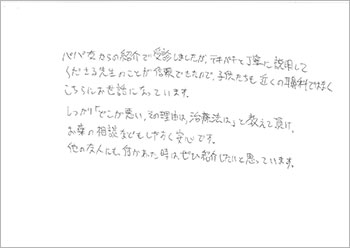 ババ友からの紹介で受診しましたが、テキパキと丁寧に説明して
くださる先生のことが信頼できたので、子供たちも近くの耳鼻科ではなく
こちらにお世話になっています。
しっかり「どこが悪い、その理由は、治療法は」と教えて頂け、
お薬の相談などもしやすく安心です。
他の友人にも、何かあった時は、ぜひ紹介したいと思っています。